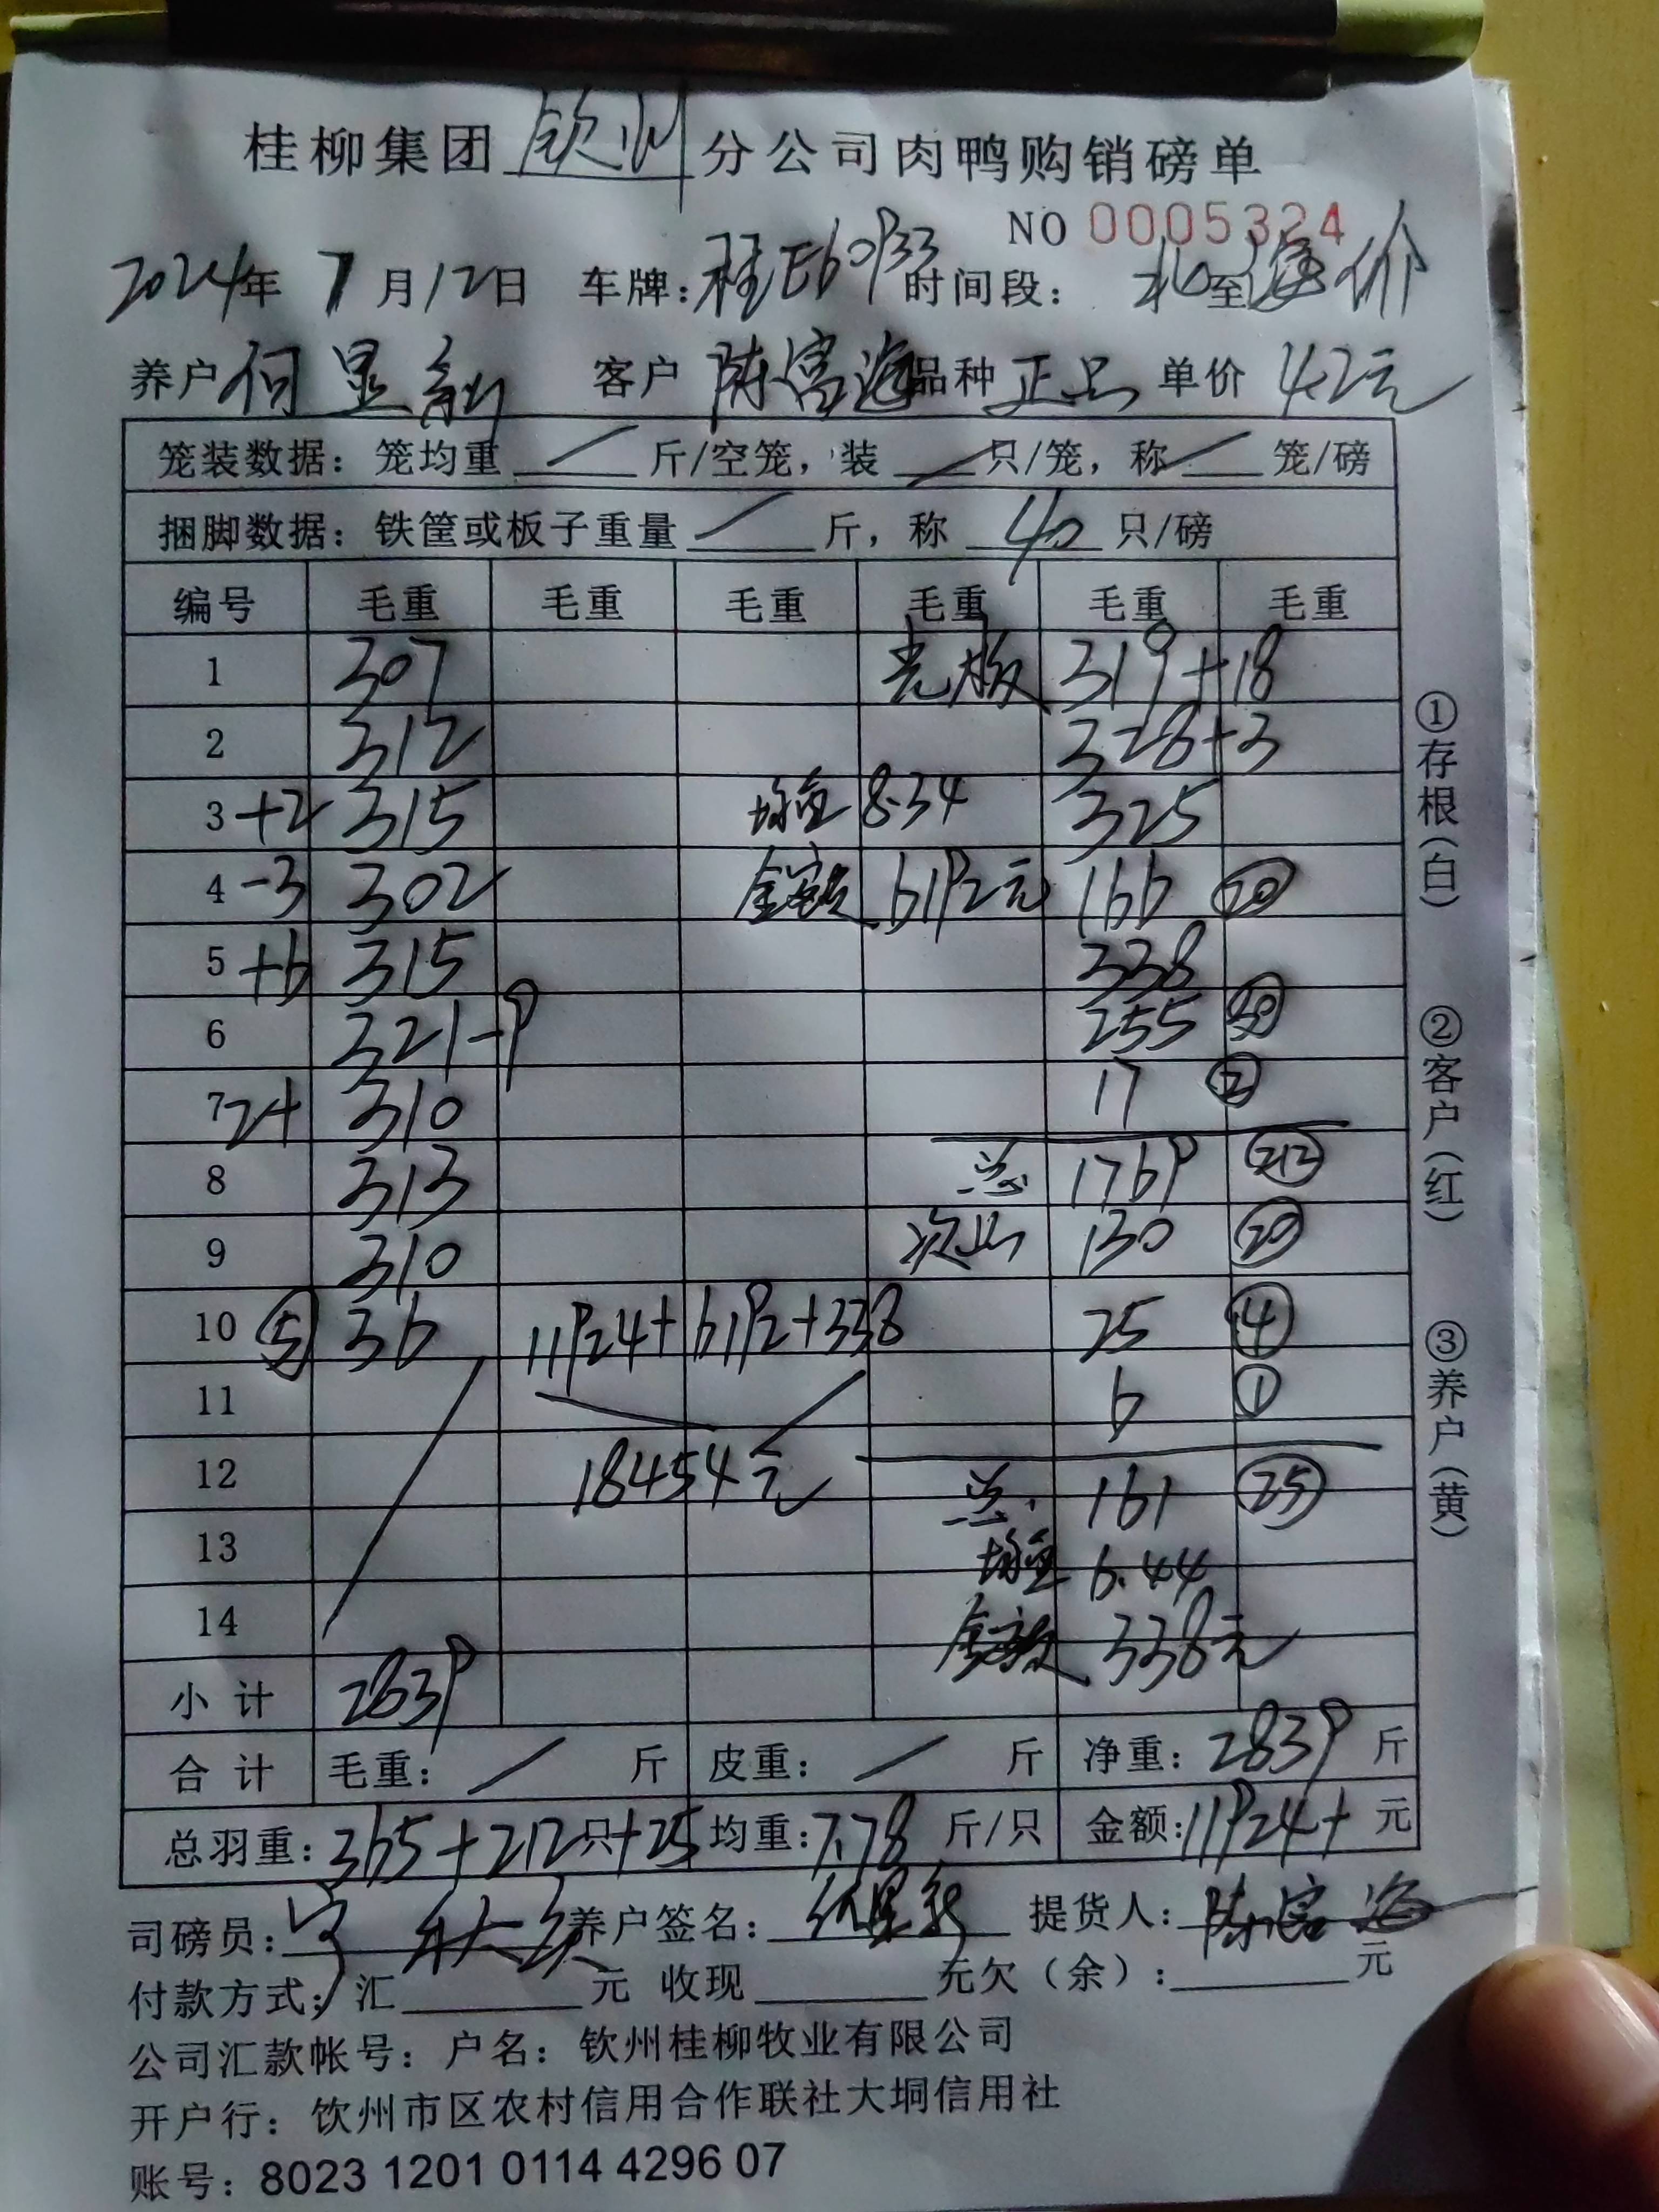 桂柳集团 钦州 分公司肉鸭购销磅单
NO 0005324
2024年 7月12日 车牌:桂E60933 时间段: 北至海价
养户 何显新 客户 陈富海 品种 正品 单价 4.2元
笼装数据：笼均重 / 斤/空笼，装 / 只/笼，称 / 笼/磅
捆脚数据：铁筐或板子重量 / 斤，称 40 只/磅
编号 毛重 毛重 毛重 毛重 毛重 毛重
1 307 光板 319+18
2 312 328+3
3 +2 315 均重 8.34 325
4 -3 302 金额 6192元 166 20
5 +6 315 338
6 321-9 255 30
7 2+ 310 17 2
8 313 总 1769 212
9 310 次品 130 20
10 5 36 11924+6192+338 25 4
11 6 1
12 18454元 总 161 25
13 均重 6.44
14 金额 338元
小计 2839
合计 毛重: / 斤 皮重: / 斤 净重: 2839 斤
总羽重: 365+212只+25 均重:7.78 斤/只 金额:11924+ 元
司磅员: 养户签名: 何显新 提货人: 陈富海
付款方式: 汇 元 收现 元欠（余）: 元
公司汇款帐号：户名：钦州桂柳牧业有限公司
开户行：钦州市区农村信用合作联社大垌信用社
账号：8023 1201 0114 4296 07
①存根(白)
②客户(红)
③养户(黄)